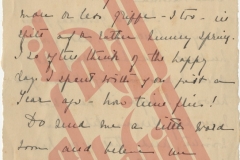 more or less grippe – I too – in
spite of a rather sunny spring.
I so often think of the happy
days I spent with you just a
year ago – how time flies!
Do send me a little word
soon and believe me